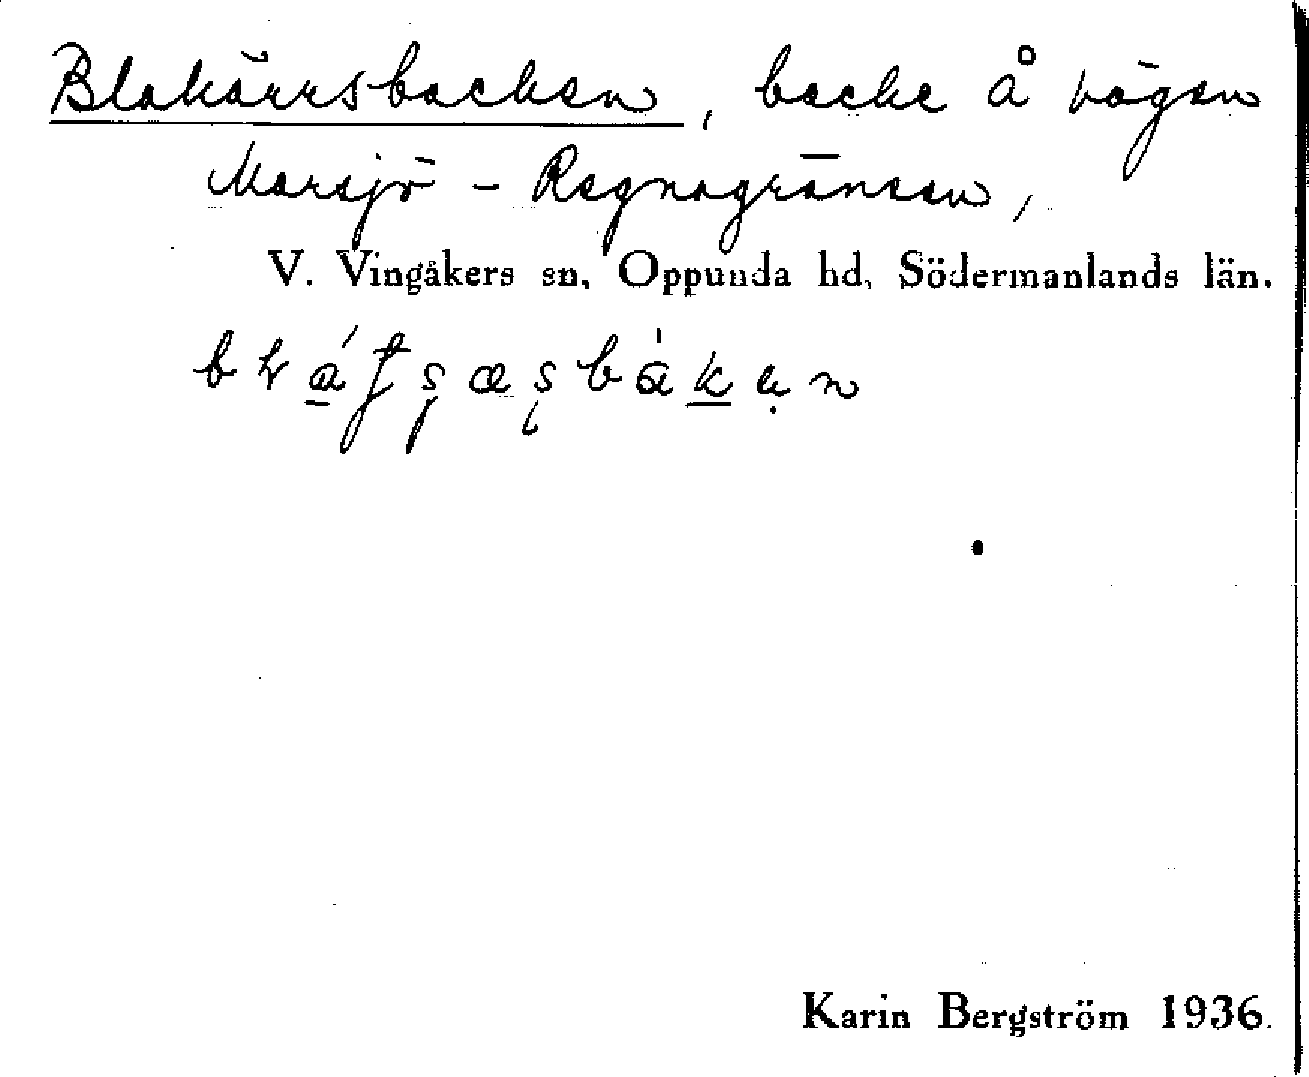 Blakärrsbacken, backe å vägen
Marsjö - Regnagränsen,
V. Vingåkers sn, Oppunda hd, Södermanlands län.
Karin Bergström 1936.